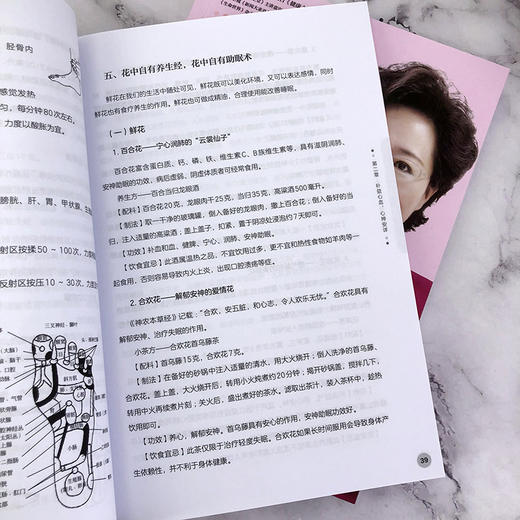 胫骨内
感觉发热
匀，每分钟80次左右。
力度以酸胀为宜。
膀胱、肝、胃、甲状腺、生
射区按揉50～100次，力
反射区按压10～30次，力
三叉神经
小脑
生殖腺
五、花中自有养生经，花中自有助眠术
鲜花在我们的生活中随处可见，鲜花既可以美化环境，又可以表达感情，同时
鲜花也有食疗养生的作用。鲜花也可做成精油，合理使用能改善睡眠。
（一）鲜花
1. 百合花——宁心润肺的“云裳仙子”
百合花富含蛋白质、钙、磷、铁、维生素C、B族维生素等，具有滋阴润肺、
安神助眠的功效，病后虚弱、阴虚体质者可经常食用。
养生方——百合当归龙眼酒
【配料】百合花20克，龙眼肉干25克，当归35克，高粱酒500毫升。
【制法】取一干净的玻璃罐，倒入备好的龙眼肉，撒上百合花；倒入备好的当
归，注入适量的高粱酒；盖上盖子，扣紧，置于阴凉处浸泡约7天即可。
【功效】补血和血、健脾、宁心、润肺、安神助眠。
【饮食宜忌】此酒属温热之品，不宜饮用过多，更不宜和热性食物如羊肉等一
起食用，否则容易导致内火上炎，出现口腔溃疡等症。
2. 合欢花——解郁安神的爱情花
《神农本草经》记载：“合欢，安五脏，和心志，令人欢乐无忧。”合欢花具有
解郁安神、治疗失眠的作用。
小茶方——合欢花首乌藤茶
【配料】首乌藤15克，合欢花7克。
【制法】在备好的砂锅中注入适量的清水，用大火烧开；倒入洗净的首乌藤、
合欢花。盖上盖，大火烧开后，转用小火炖煮约20分钟；揭开砂锅盖，搅拌几下，
转用中火再续煮片刻；关火后，盛出煮好的茶水。滤取出茶汁，装入茶杯中，趁热
饮用即可。
【功效】养心，解郁安神。首乌藤具有安心的作用，安神助眠功效好。
【饮食宜忌】此茶仅限于治疗轻度失眠。合欢花如果长时间服用会导致身体产
生依赖性，并不利于身体健康。
第二章 补益心血：心神安详
39